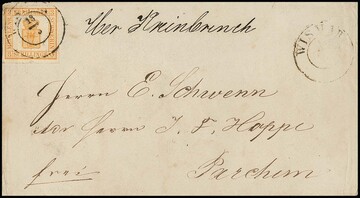 über Kleinbrunch
WISMAR
Herrn E. Schwenn
Herrn J. F. Hoppe
frei
Parchim